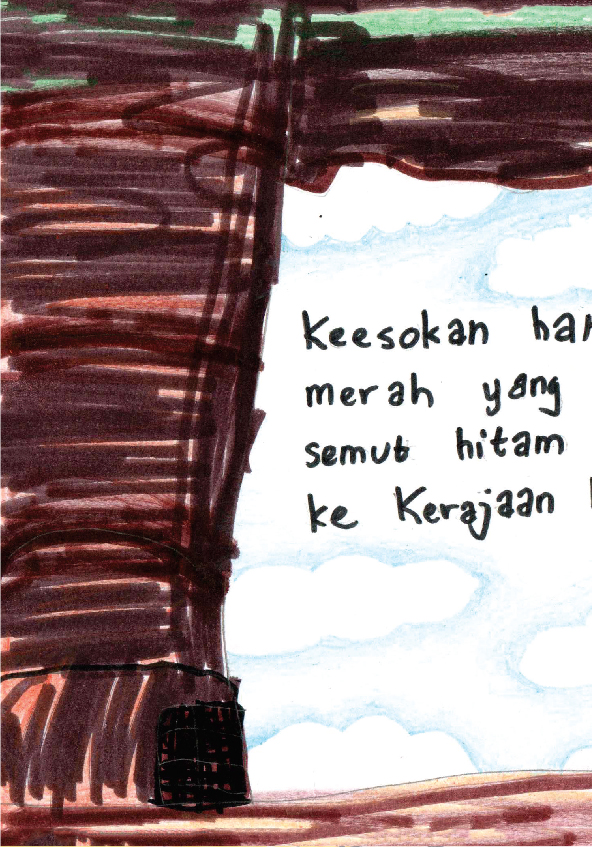 Keesokan har
merah yang
semut hitam
ke Kerajaan